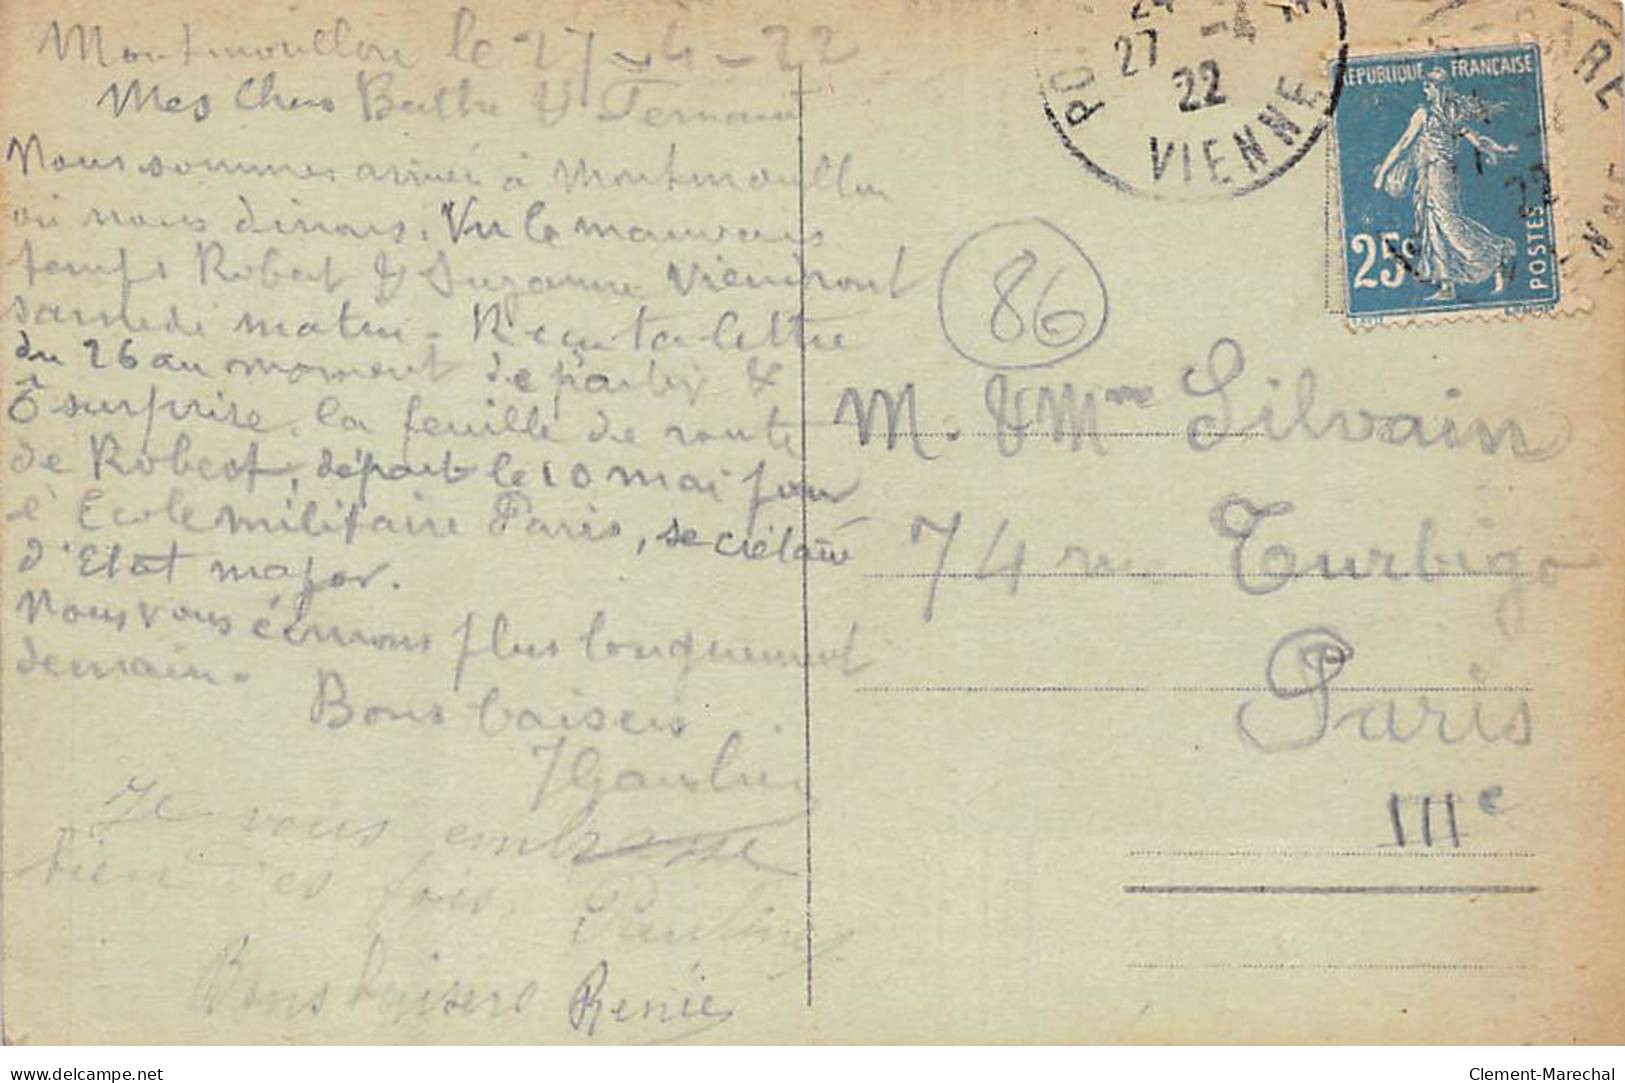 Montmorillon le 27-4-22
Mes Chers Berthe & Fernand
Nous sommes arrivés à Montmorillon
où nous dînons. Vu le mauvais
temps Robert & Suzanne viendront
samedi matin. Reçu ta lettre
du 26 au moment de partir &
ô surprise, la feuille de route
de Robert, départ le 10 mai pour
l'Ecole militaire Paris, secrétaire
d'Etat major.
Nous vous écrirons plus longuement
demain.
Bons baisers
Je vous embrasse
bien des fois.
Bons baisers Renée
27
22
VIENNE
REPUBLIQUE FRANÇAISE
25c
POSTES
22
86
M. & Mme Silvain
74 rue Turbigo
Paris
IIIe
www.delcampe.net
Clement-Marechal